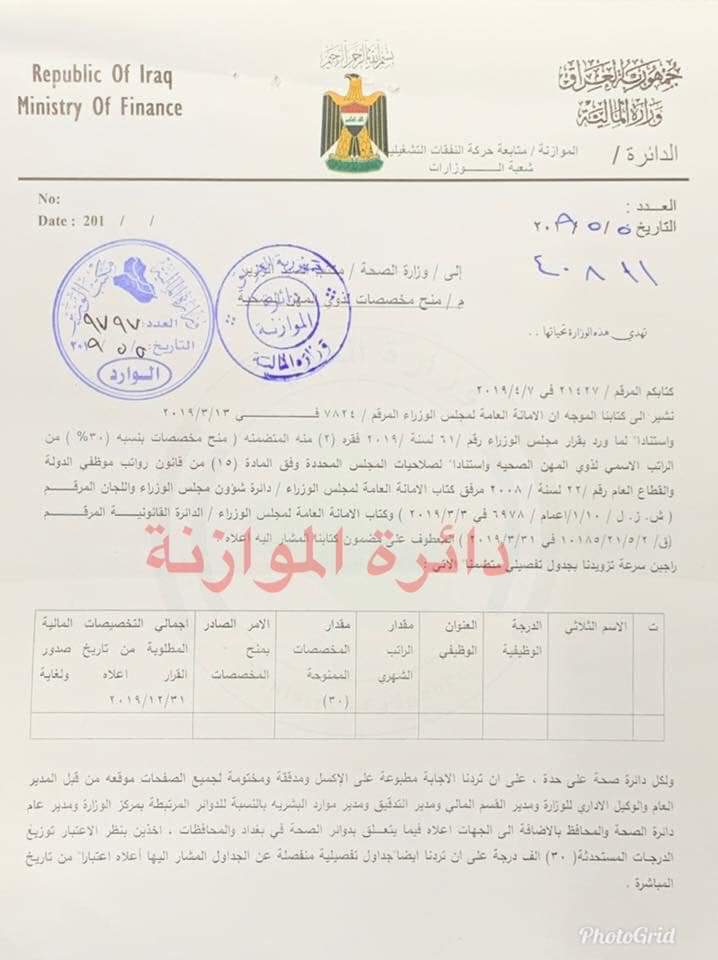 بسم الله الرحمن الرحيم
Republic Of Iraq
Ministry Of Finance
جمهورية العراق
وزارة المالية
الدائرة / الموازنة / متابعة حركة النفقات التشغيلية
شعبة الـــــوزارات
No:
Date : 201 / /
العـــدد :
التاريخ ٢٠١٩/٥/٥
٤٠٨١١
إلى / وزارة الصحة / مكتب السيد الوزير
م / منح مخصصات لذوي المهن الصحية
جمهورية العراق
دائرة
الموازنة
وزارة المالية
العدد: ٩٧٩٧
التاريخ: ٥/٥/٢٠١٩
الـــوارد
تهدي هذه الوزارة تحياتها . .
كتابكم المرقم / ٢١٤٢٧ في ٢٠١٩/٤/٧
نشير الى كتابنا الموجه ان الامانة العامة لمجلس الوزراء المرقم / ٧٨٢٤ فـــــي ٢٠١٩/٣/١٣
واستنادا" لما ورد بقرار مجلس الوزراء رقم /٦١ لسنة /٢٠١٩ فقره (٢) منه المتضمنه ( منح مخصصات بنسبه (٣٠%) من
الراتب الاسمي لذوي المهن الصحيه واستنادا" لصلاحيات المجلس المحددة وفق المادة (١٥) من قانون رواتب موظفي الدولة
والقطاع العام رقم /٢٢ لسنة / ٢٠٠٨ مرفق كتاب الامانة العامة لمجلس الوزراء / دائرة شؤون مجلس الوزراء واللجان المرقـــم
( ش . ز . ل /١/١٠/اعمام / ٦٩٧٨ في ٢٠١٩/٣/٣ ) وكتاب الامانة العامة لمجلس الوزراء / الدائرة القانونيـــة المرقـــم
(ق/٢/٥/٢١/١٠١٨٥ في ٢٠١٩/٣/٣١ ) المعطوف على مضمون كتابنا المشار اليه اعلاه.
دائرة الموازنة
راجين سرعة تزويدنا بجدول تفصيلي متضمنا" الاتي :
ت
الاسم الثلاثي
الدرجة
الوظيفية
العنوان
الوظيفي
مقدار
الراتب
الشهري
مقدار
المخصصات
الممنوحة
(٣٠)
الامر الصادر
بمنح
المخصصات
اجمالي التخصيصات المالية
المطلوبة من تاريخ صدور
القرار اعلاه ولغاية
٢٠١٩/١٢/٣١
ولكل دائرة صحة على حدة ، على ان تردنا الاجابة مطبوعة على الإكسل ومدققة ومختومة لجميع الصفحات موقعه من قبل المدير
العام والوكيل الاداري للوزارة ومدير القسم المالي ومدير التدقيق ومدير موارد البشريه بالنسبة للدوائر المرتبطة بمركز الوزارة ومدير عام
دائرة الصحة والمحافظ بالاضافة الى الجهات اعلاه فيما يتعلق بدوائر الصحة في بغداد والمحافظات ، اخذين بنظر الاعتبار توزيع
الدرجات المستحدثة( ٣٠) الف درجة على ان تردنا ايضا"جداول تفصيلية منفصلة عن الجداول المشار اليها أعلاه اعتبارا" من تاريخ
المباشرة .
PhotoGrid